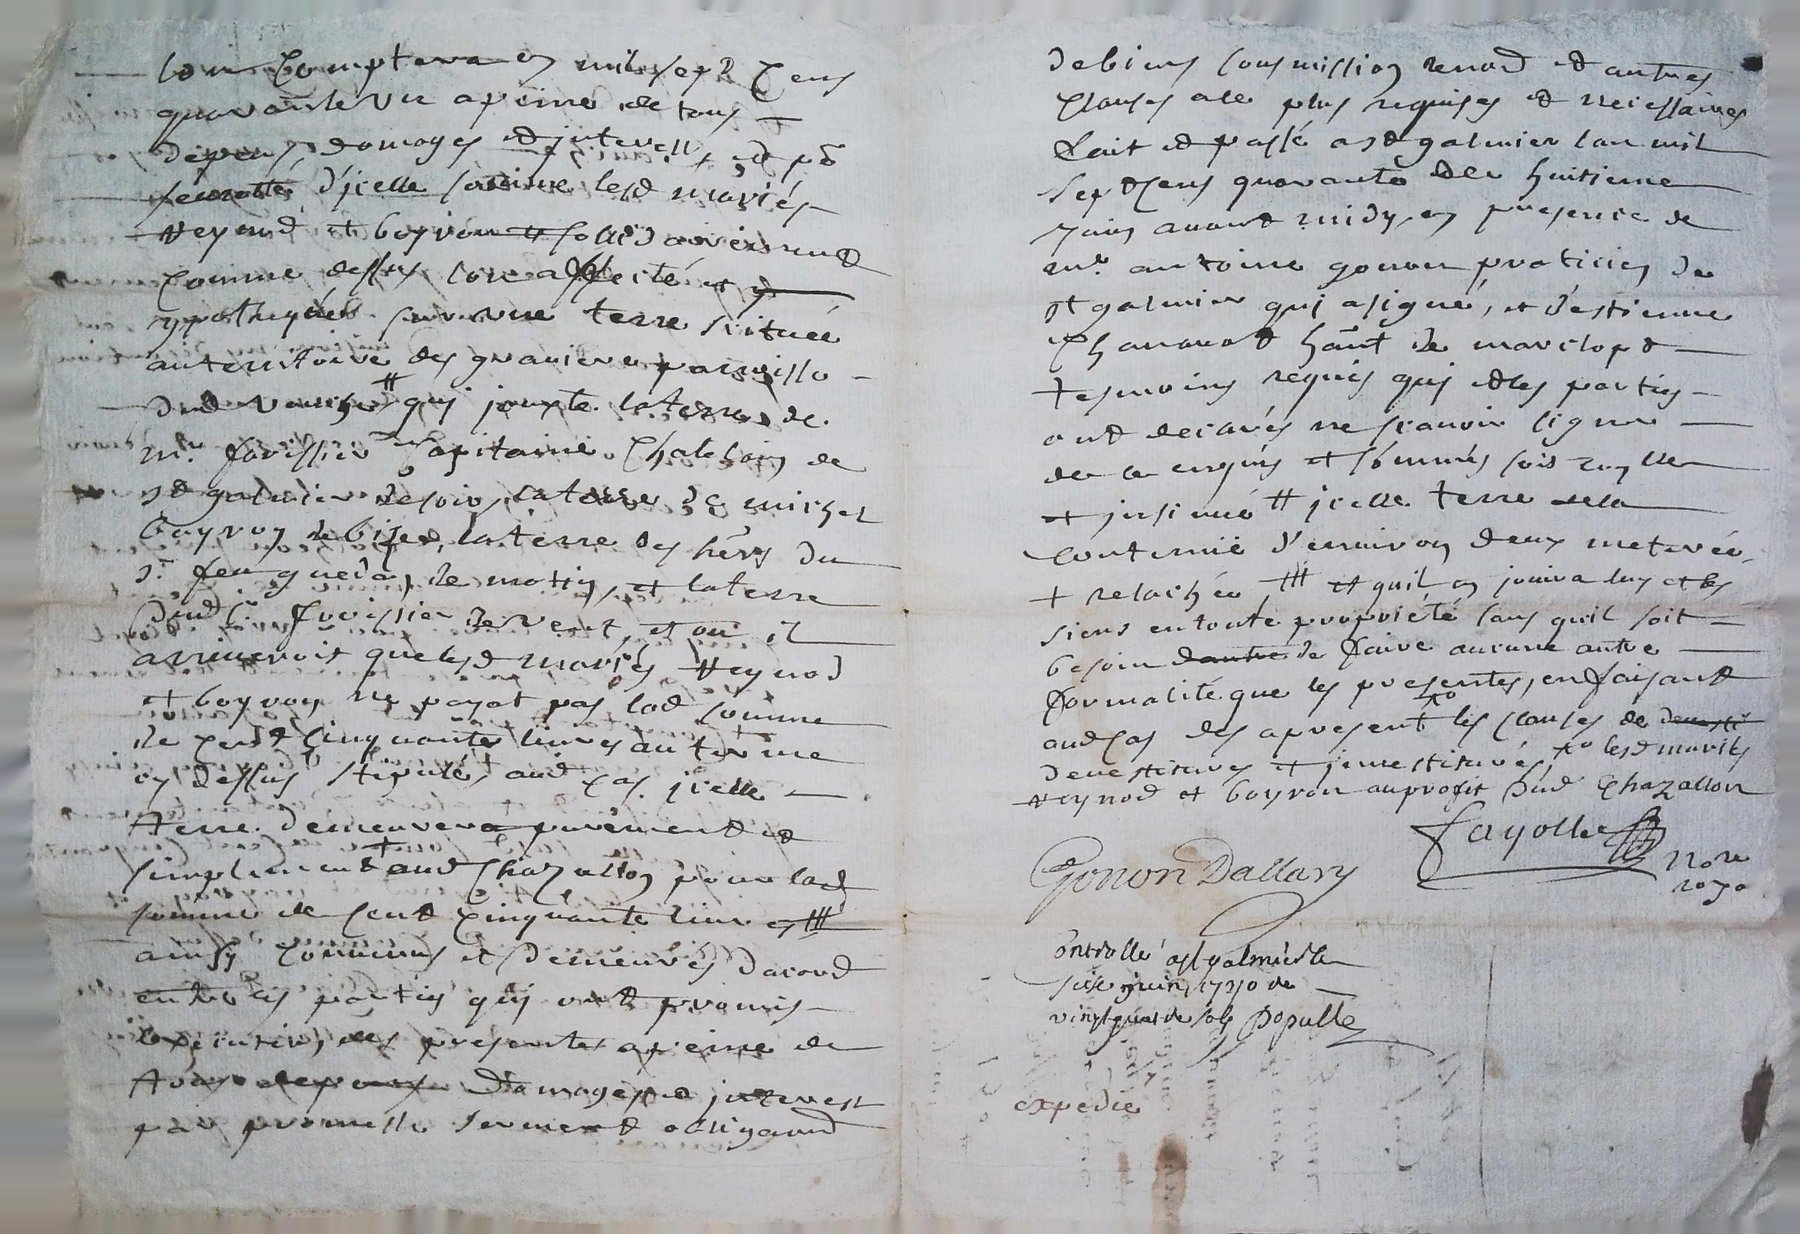 lon Comptera en mil sept Cens
quarante un a peine de tous
depens domages et interest, et po
seurette d'jcelle somme lesd mariés
Neynod et boyron solid
Comme dessus ont affecté et y
ypothequés sur une terre scituée
au territoire des graviere parroisse
dud # qui jouxte la terre de
mr. forissier Capitaine Chatelain de
st galmier de soir, la terre de michel
boyron de bize, la terre des hers du
sr de matin, et la terre
dud sr forissier de vent, et ou il
arriveroit que lesd mariés Neynod
et boyron ne payat pas lad somme
de cent Cinquante livres au terme
cy dessus stipulé, aud Cas jcelle
terre demeurera purement et
simplement + aud Chazallon pour lad
somme de Cent Cinquante livres #
ainsy Convenus et demeurés dacord
entre les parties qui ont promis
l'execution des presentes a peine de
tous depens domages et interest
par promesse serment obligaon
de biens sousmission renon et autres
Clauses a ce plus requises et necessaires
fait et passé a st galmier lan mil
sept Cens quarante & le huitieme
juin avant midy, en presence de
mr. antoine gonon praticien de
st galmier qui a signé, et d'estienne
hant de marclopt
tesmoins requis qui et les parties
ont declarés ne scavoir signer
de ce enquis et sommés soit
et jnsinué # jcelle terre de la
Contenue d'environ deux meterée
+ relachée # et quil en jouira luy et les
siens en toute propriété sans quil soit
besoin dautre de faire aucune autre
formalité que les presentes, en faisant
aud Cas des apresent les clauses de devesti
devestitures et jnvestitures, lesd mariés
Neynod et boyron au profit dud Chazallon
Gonon Dallary
fayolle
nore
royo
Controllé a st galmier le
seize juin 1740 Re
vingt quatre sols Populle
expedié